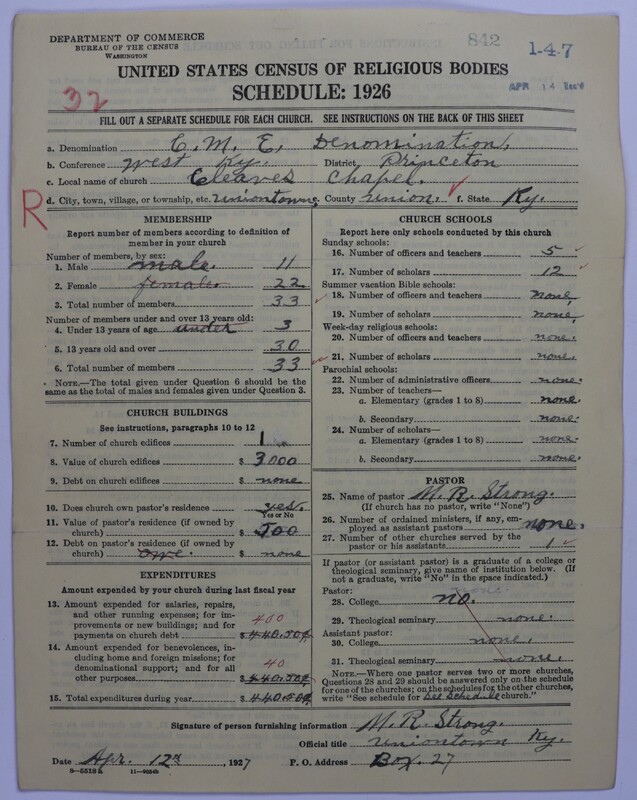 DEPARTMENT OF COMMERCE
BUREAU OF THE CENSUS
WASHINGTON
842
1-4-7
APR 14
UNITED STATES CENSUS OF RELIGIOUS BODIES
SCHEDULE: 1926
32
FILL OUT A SEPARATE SCHEDULE FOR EACH CHURCH. SEE INSTRUCTIONS ON THE BACK OF THIS SHEET
a. Denomination C. M. E. Denomination.
b. Conference West Ky. District Princeton
c. Local name of church Cleaves Chapel.
R
d. City, town, village, or township, etc. Uniontown e. County Union. f. State Ky.
MEMBERSHIP
Report number of members according to definition of
member in your church
Number of members, by sex:
1. Male male. 11
2. Female female. 22
3. Total number of members 33
Number of members under and over 13 years old:
4. Under 13 years of age under 3
5. 13 years old and over 30
6. Total number of members 33
NOTE.—The total given under Question 6 should be the
same as the total of males and females given under Question 3.
CHURCH BUILDINGS
See instructions, paragraphs 10 to 12
7. Number of church edifices 1
8. Value of church edifices $ 3000
9. Debt on church edifices $ none
10. Does church own pastor's residence yes.
Yes or No
11. Value of pastor's residence (if owned by
church) $ 500
12. Debt on pastor's residence (if owned by
church) owe. $ none
EXPENDITURES
Amount expended by your church during last fiscal year
13. Amount expended for salaries, repairs,
and other running expenses; for im-
provements or new buildings; and for
payments on church debt 400 $ 440.50¢
14. Amount expended for benevolences,
including home and foreign missions; for
denominational support; and for all
other purposes 40 $ 440.50¢
15. Total expenditures during year $ 440.50¢
CHURCH SCHOOLS
Report here only schools conducted by this church
Sunday schools:
16. Number of officers and teachers 5
17. Number of scholars 12
Summer vacation Bible schools:
18. Number of officers and teachers none,
19. Number of scholars none,
Week-day religious schools:
20. Number of officers and teachers none.
21. Number of scholars none.
Parochial schools:
22. Number of administrative officers none.
23. Number of teachers—
a. Elementary (grades 1 to 8) none.
b. Secondary none.
24. Number of scholars—
a. Elementary (grades 1 to 8) none.
b. Secondary none.
PASTOR
25. Name of pastor M. R. Strong.
(If church has no pastor, write "None")
26. Number of ordained ministers, if any, em-
ployed as assistant pastors none.
27. Number of other churches served by the
pastor or his assistants 1
If pastor (or assistant pastor) is a graduate of a college or
theological seminary, give name of institution below. (If
not a graduate, write "No" in the space indicated.)
Pastor:
28. College no.
29. Theological seminary none.
Assistant pastor:
30. College none.
31. Theological seminary none.
NOTE.—Where one pastor serves two or more churches,
Questions 28 and 29 should be answered only on the schedule
for one of the churches; on the schedules for the other churches,
write "See schedule for See Schedule church."
Signature of person furnishing information M. R. Strong.
Official title Uniontown Ky.
Date Apr. 12th, 1927 P. O. Address Box. 27
8-5518a 11-9054b